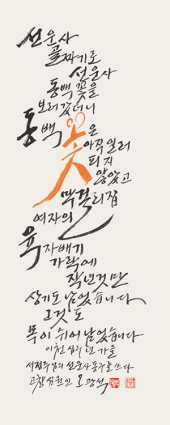 선운사
골짜기로
선운사
동백꽃을
보러갔더니
동백꽃은
아직 일러
피지
않았고
막걸리집
여자의
육자배기
가락에
작년것만
상기도 남었습니다
그것도
목이 쉬어 남었습니다
이천 년 가을
서정주님의 선운사 동구를 쓰다
고창 오광석